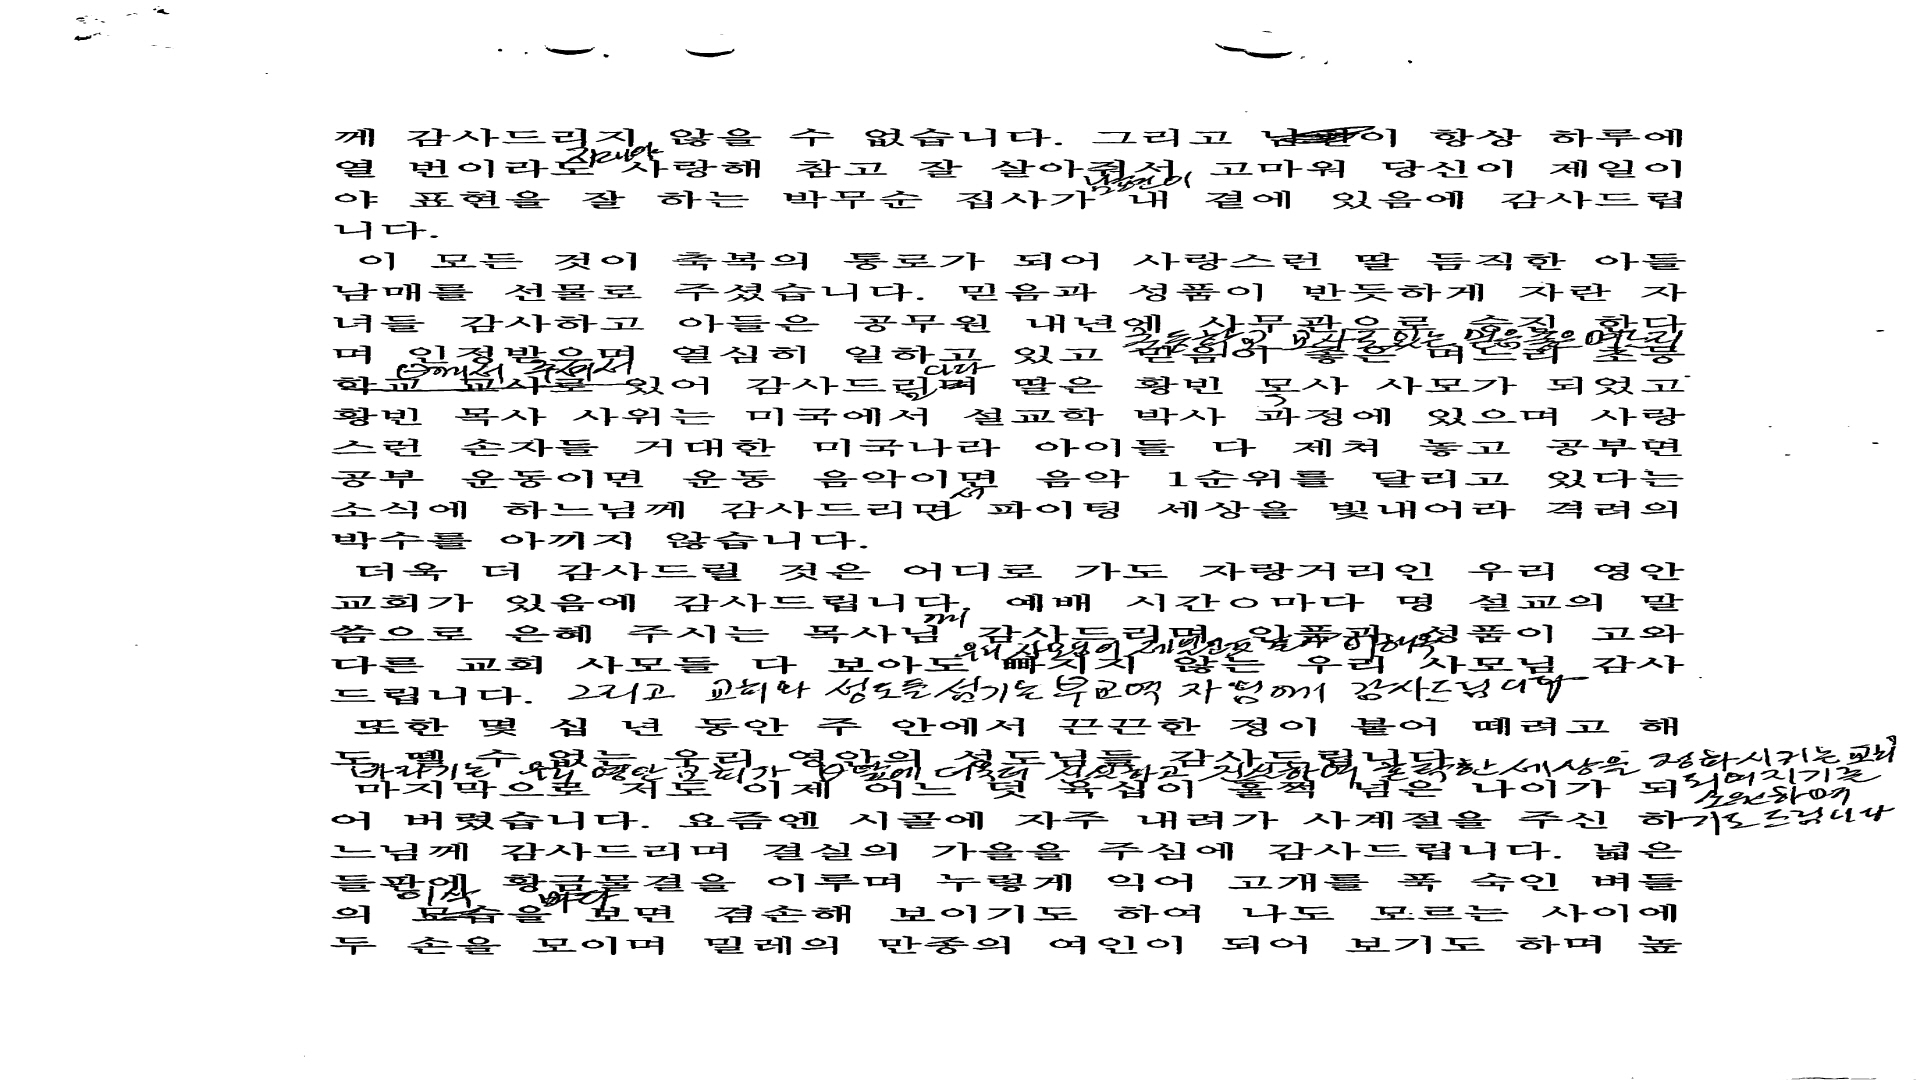 께 감사드리지 않을 수 없습니다. 그리고 이 항상 하루에
자기야
열 번이라도 사랑해 참고 잘 살아줘서 고마워 당신이 제일이
남편이
야 표현을 잘 하는 박무순 집사가 내 곁에 있음에 감사드립
니다.
이 모든 것이 축복의 통로가 되어 사랑스런 딸 듬직한 아들
남매를 선물로 주셨습니다. 믿음과 성품이 반듯하게 자란 자
녀들 감사하고 아들은 공무원 내년엔 사무관으로 승진 한다
며 인정받으며 열심히 일하고 있고 믿음이 좋은 며느리 초등
학교 교사로 있어 감사드리며 딸은 황빈 목사 사모가 되었고
황빈 목사 사위는 미국에서 설교학 박사 과정에 있으며 사랑
스런 손자들 거대한 미국나라 아이들 다 제쳐 놓고 공부면
공부 운동이면 운동 음악이면 음악 1순위를 달리고 있다는
서
소식에 하느님께 감사드리면 파이팅 세상을 빛내어라 격려의
박수를 아끼지 않습니다.
더욱 더 감사드릴 것은 어디로 가도 자랑거리인 우리 영안
교회가 있음에 감사드립니다. 예배 시간ㅇ마다 명 설교의 말
께
씀으로 은혜 주시는 목사님 감사드리며 인품과 성품이 고와
다른 교회 사모들 다 보아도 빠지지 않는 우리 사모님 감사
드립니다. 그리고 교회와 성도를 섬기는 부교역자님께 감사드립니다
또한 몇 십 년 동안 주 안에서 끈끈한 정이 붙어 떼려고 해
도 뗄 수 없는 우리 영안의 성도님들 감사드립니다
바라기는 우리 영안 교회가 세상을 정화시키는 교회
마지막으로 저도 이제 어느 덧 육십이 훌쩍 넘은 나이가 되
되어지기를
소원하며
어 버렸습니다. 요즘엔 시골에 자주 내려가 사계절을 주신 하
기도드립니다
느님께 감사드리며 결실의 가을을 주심에 감사드립니다. 넓은
들판에 황금물결을 이루며 누렇게 익어 고개를 푹 숙인 벼들
의 모습을 보면 겸손해 보이기도 하여 나도 모르는 사이에
두 손을 모이며 밀레의 만종의 여인이 되어 보기도 하며 높